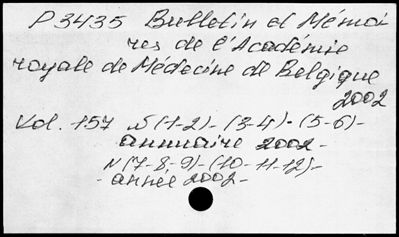 P3435 Bulletin et Mémoi
res de l'Académie
royale de Médecine de Belgique
2002
Vol. 157 N(1-2)-(3-4)-(5-6)-
annuaire 2002-
N(7-8-9)-(10-11-12)-
- année 2002-